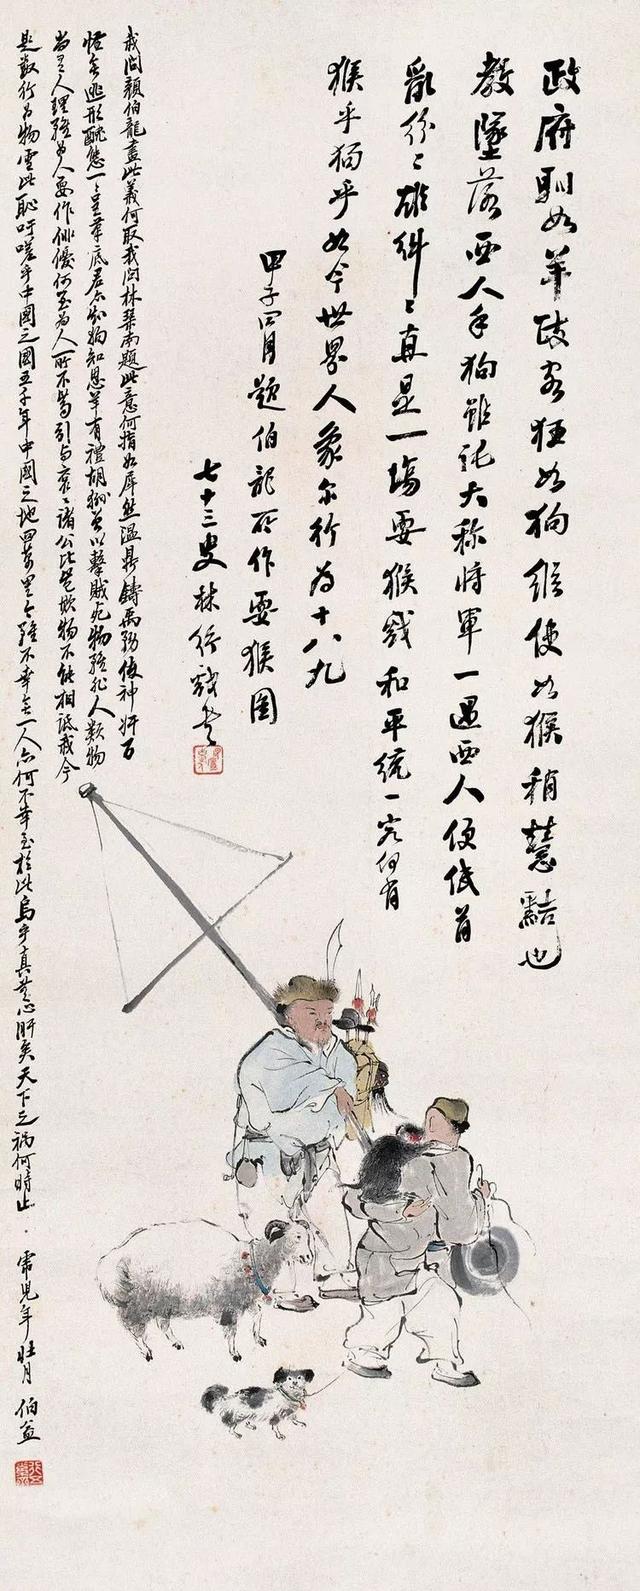 政府馴如羊政客狂如狗縱使如猴稍慧黠也
教墜落西人手狗雖託大称將軍一遇西人便低首
亂紛〻雄糾〻真是一場耍猴戲和平統一究何有
猴乎狗乎如今世界人象尔行為十八九
甲子四月題伯龍所作耍猴圖
七十三叟林紓識於
我問顏伯龍畫此義何取我問林琴南題此意何指如犀燃溫鼎鑄禹務使神奸百
怪無逃形醜態一〻呈筆底君不知狗知恩羊有禮胡猻曾以擊賊死物雖非人類物
尚具人理雖為人耍作俳優何至為人所不齒引与袞〻諸公比是欺物不能相詆我今
是獸行為物雪此恥吁嗟乎中國之國五千年中國之地四萬里今雖不幸無一人亦何不幸至於此烏乎真無心肝矣天下之禍何時止
霜 年壯月 伯益